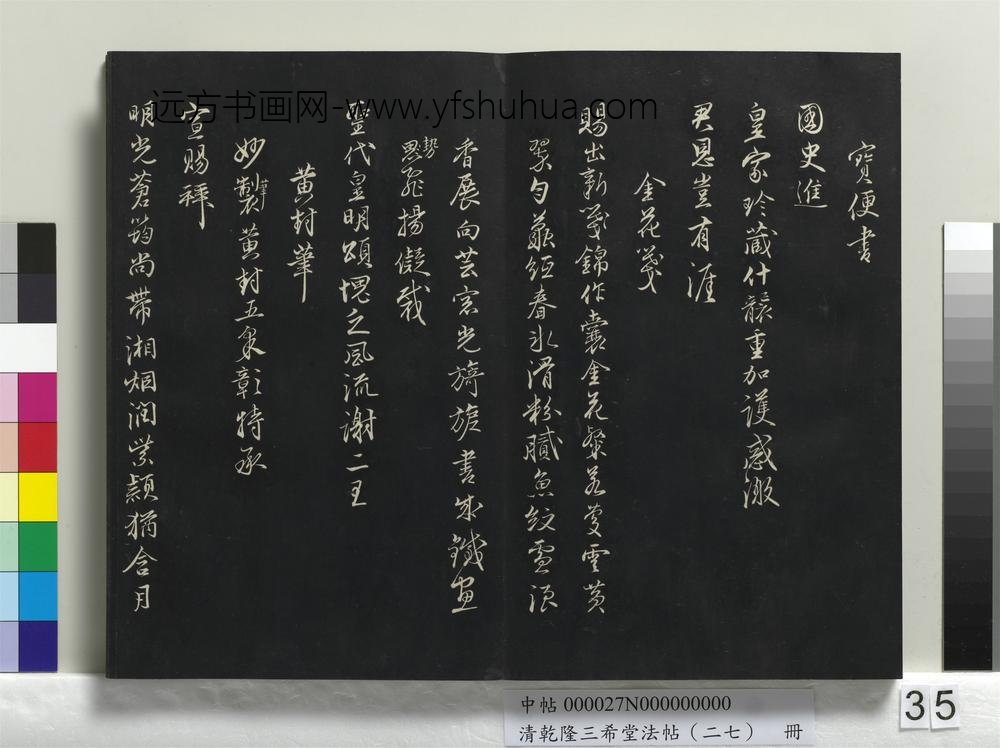 寶便書
國史進
皇家珍藏什襲重加護感激
君恩豈有涯
金花箋
賜出新箋錦作囊金花燦若蔓雲黃
翠勻蘸紙春冰滑粉膩魚紋雪浪
香展向芸窗光旖旎書成鐵畫
勢
思飛揚儗裁
聖代皇明頌愧之風流謝二王
黃封筆
筆
妙製黃封五采彰特承
宣賜拜
明光蒼筠尚帶湘烟潤紫穎猶含月
远方书画网-www.yfshuhua.com
中帖 000027N000000000
清乾隆三希堂法帖（二七） 冊
35